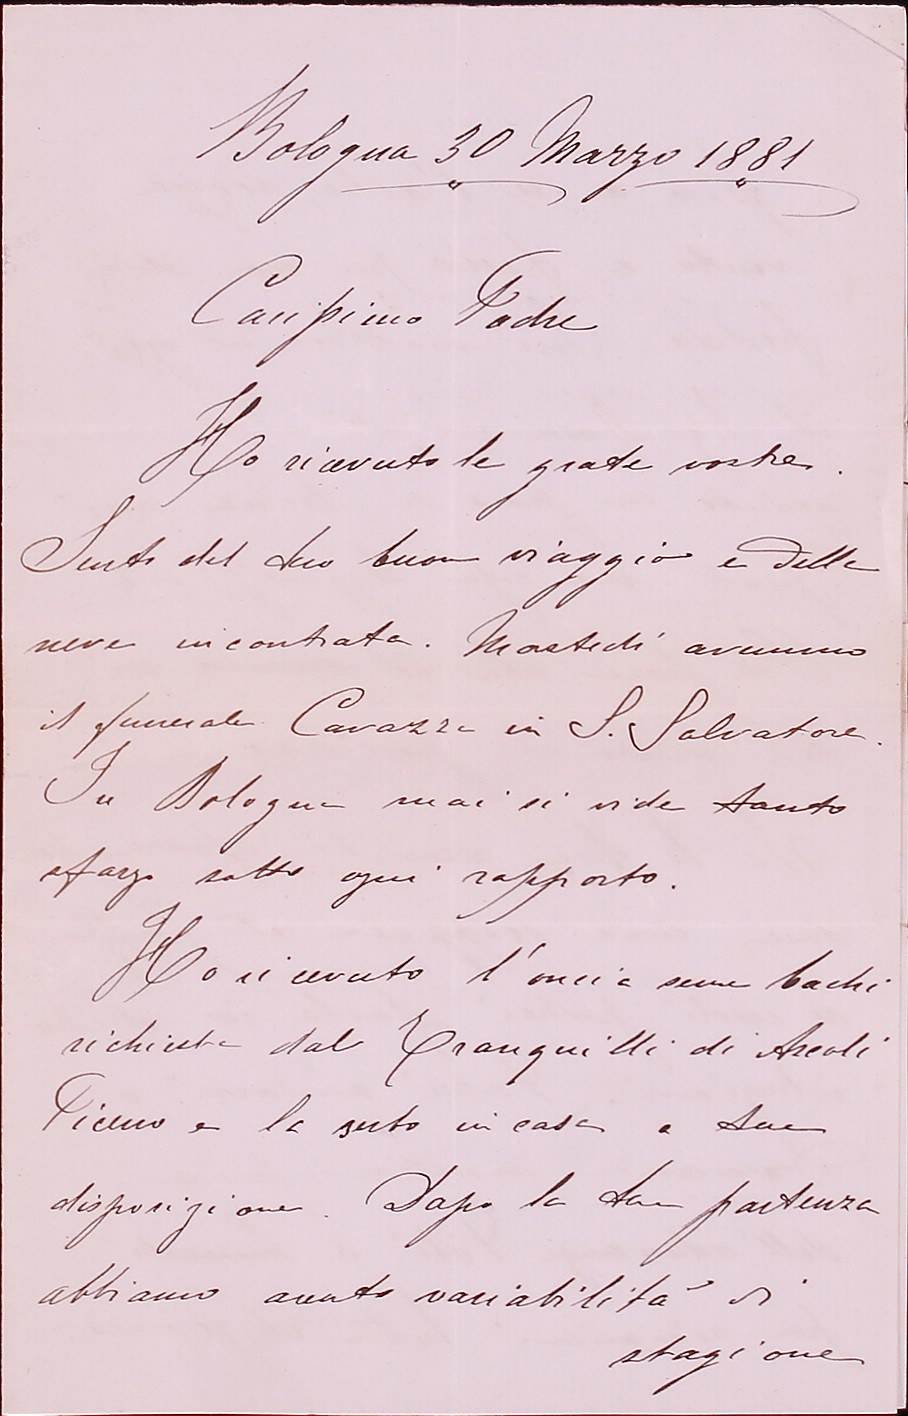 Bologna 30 Marzo 1881
Carissimo Padre
Ho ricevuto le grate vostre.
Sento del tuo buon viaggio e della
neve incontrata. Martedì avemmo
il funerale Cavazza in S. Salvatore.
In Bologna mai si vide tanto
sfarzo sotto ogni rapporto.
Ho ricevuto l'oncia seme bachi
richiesta dal Tranquilli di Ascoli
Piceno e la in casa a tua
disposizione. Dopo la tua partenza
abbiamo avuto variabilità di
stagione